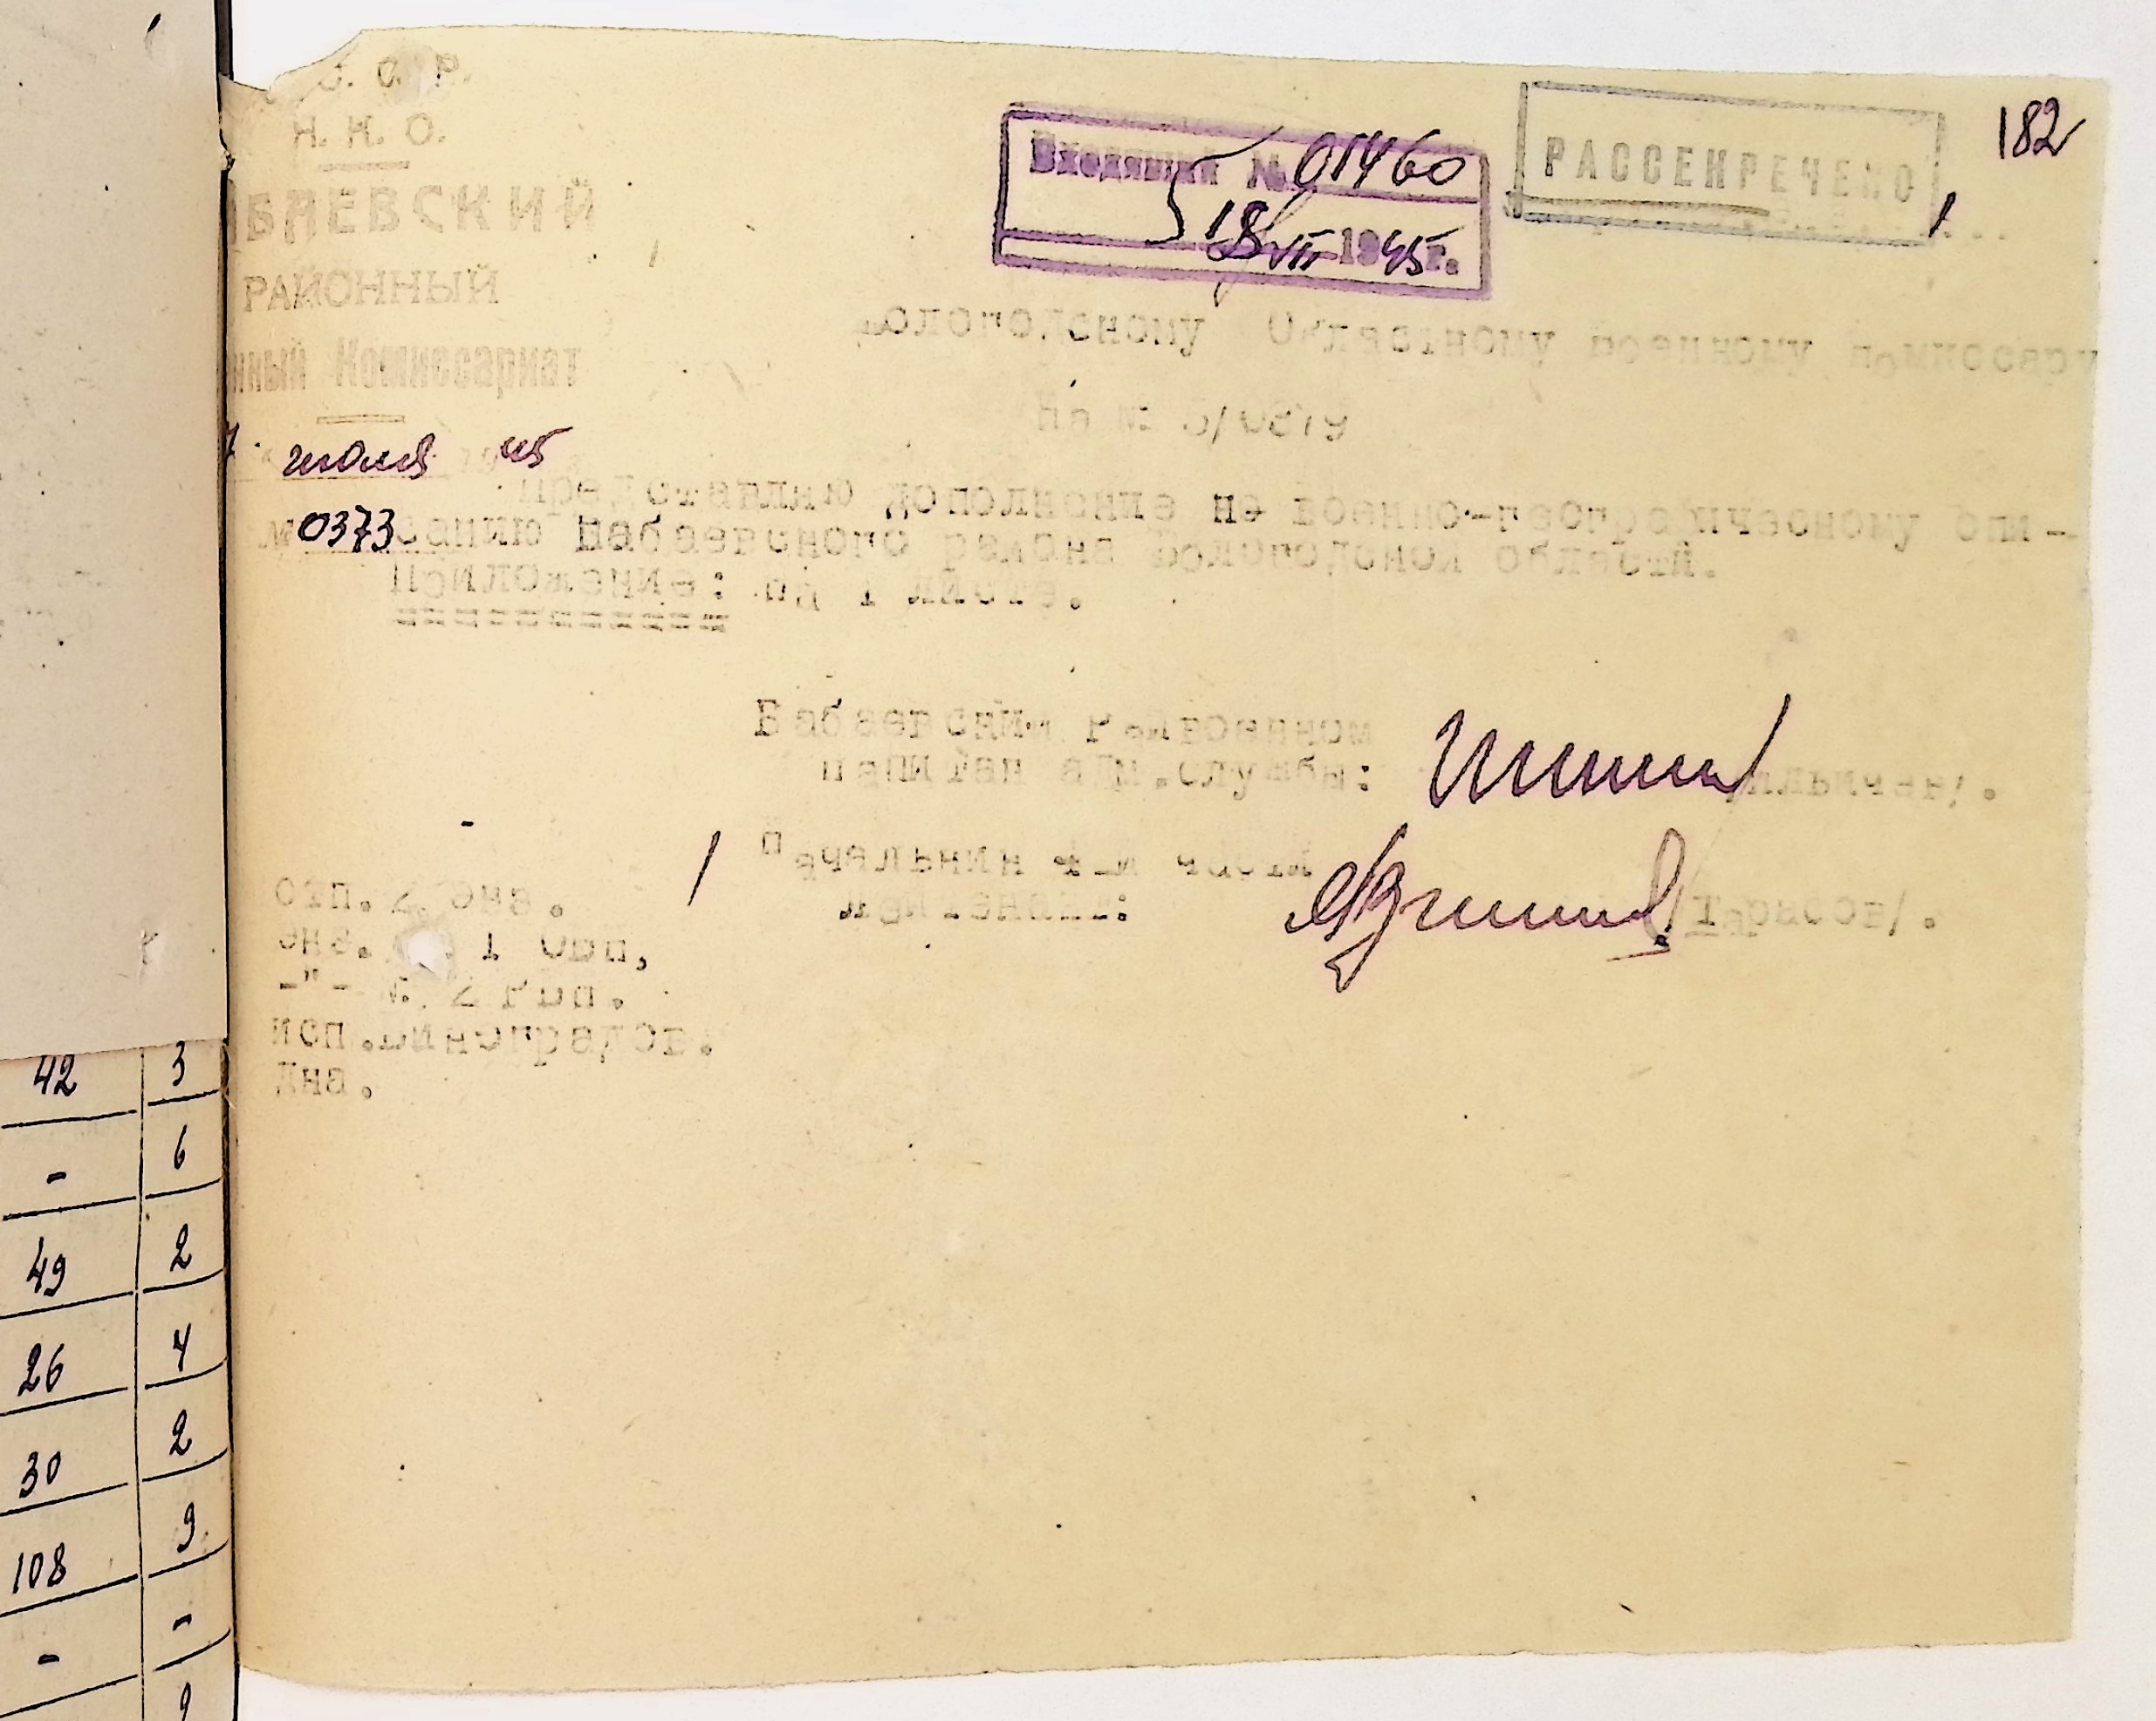 182
С. С. Р.
Н. К. О.
БАЕВСКИЙ
РАЙОННЫЙ
нный Комиссариат
июля 45
№ 0373
Входящий № 01460
18 VII 1945 г.
РАССЕКРЕЧЕНО
Вологодскому Областному военному комиссару
На №
Представляю дополнение по военно-географическому опи-
санию Бабаевского района Вологодской области.
Приложение: на 1 листе.
Бабаевский Райвоенком
капитан адм.службы:
Начальник 4-й части
лейтенант: /Тарасов/.
отп. 2 экз.
экз. 1
-"- № 2
исп.Виноградов.
42 3
- 6
49 2
26 4
30 2
108 9
- -